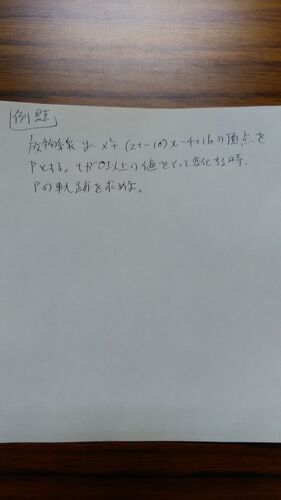 例題
放物線 y=x²+(2t-10)x-4t+16の頂点を
Pとする。tが0以上の値をとって変化する時、
Pの軌跡を求めよ。